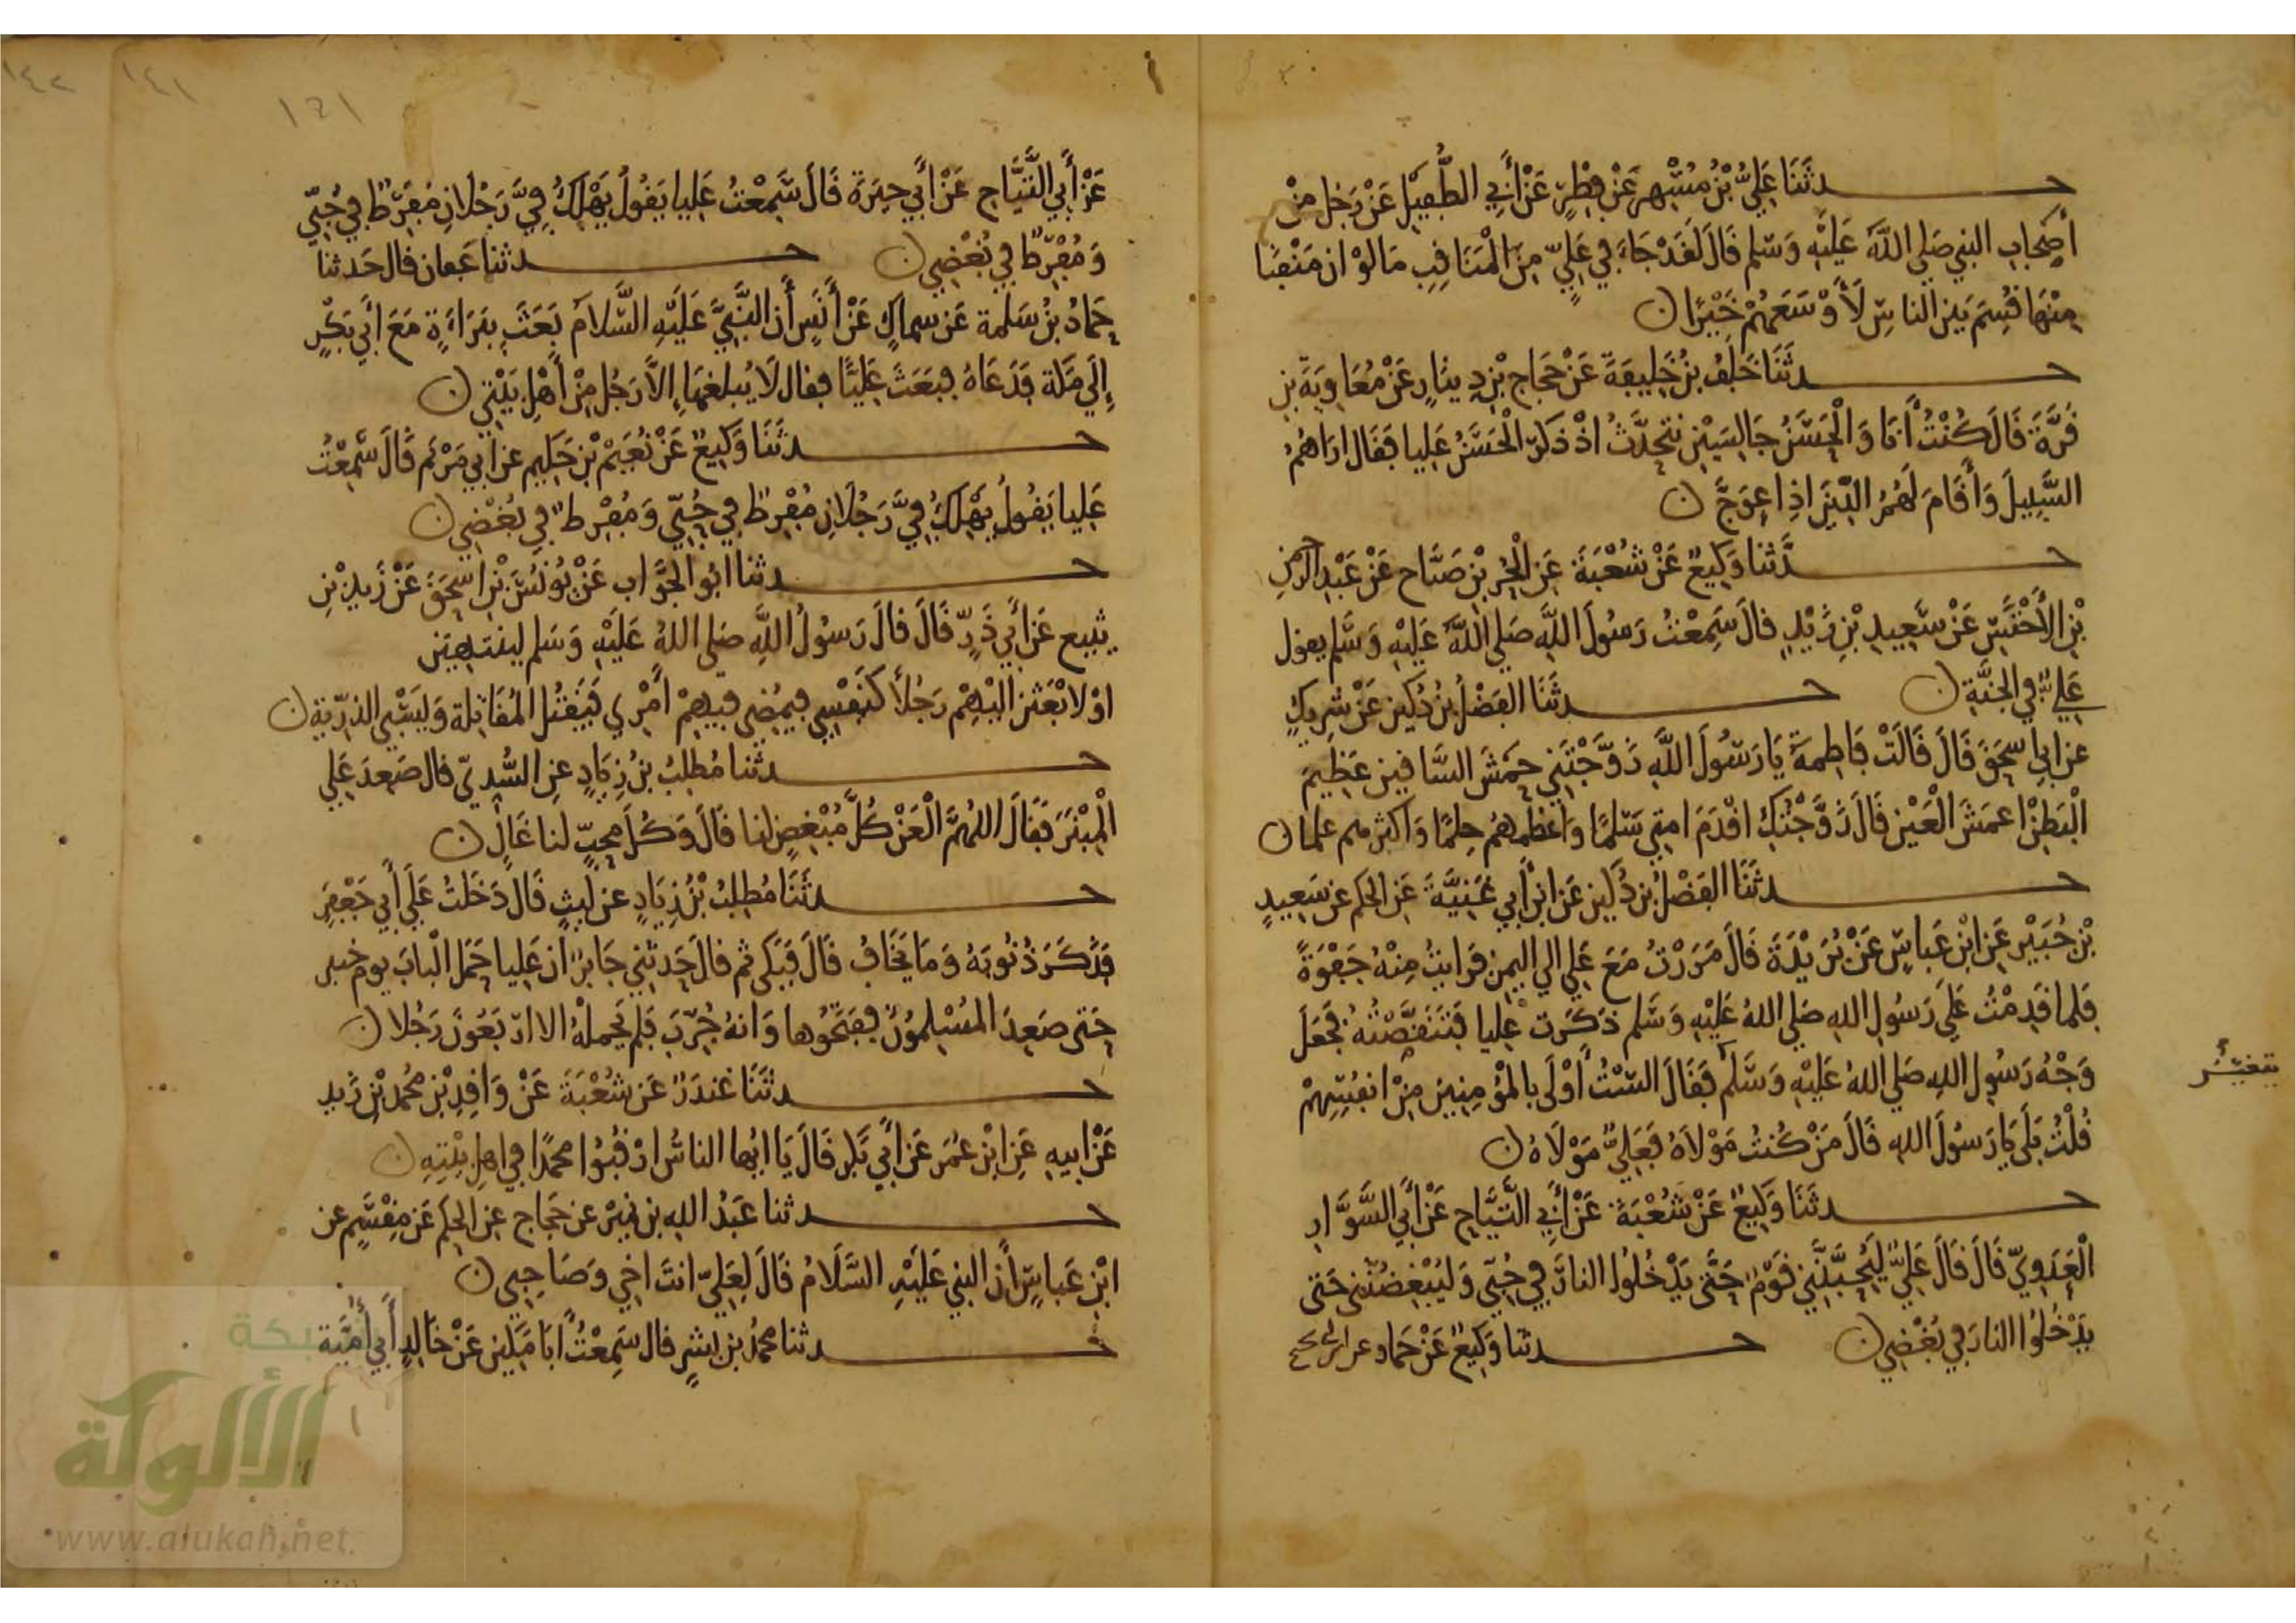 حدثَنَا عَلِيُّ بْنُ مُسْهِرٍ عَنْ فِطْرٍ عَنْ أَبِي الطُّفَيْلِ عَنْ رَجُلٍ مِنْ
أصحاب النبي صَلى اللَّهُ عَلَيْهِ وَسَلم قَالَ لَقَدْ جَاءَ فِي عَلِيٍّ مِنَ الْمَنَاقِبِ مَا لَوْ ان مَنْقَبًا
مِنْهَا قُسِمَ بَيْن الناسِ لَأَوْسَعَهُمْ خَيْرًا ن
حدثَنَا خَلَفُ بْنُ خَلِيفَةَ عَنْ حَجاج بْنِ دِينَارٍ عَنْ مُعَاوِيَةَ بْن
قُرَّةَ قَالَ كُنْتُ أَنَا وَالْحَسَنُ جَالِسَيْنِ نتحدَّثُ اذْ ذكَرَ الْحَسَنُ عَلِيا فَقَال ارَاهُمُ
السَّبِيلَ وَأَقَامَ لَهُمُ الدِّينَ اذِا اعوَجَّ ن
حدَّثنا وَكِيعٌ عَنْ شُعْبَةَ عَن الْحُر بْنِ صَيَّاح عَنْ عَبْدِ الرحمن
بْن الأَخْنَسِ عَنْ سَعِيدِ بْنِ زَيْدٍ قالَ سَمِعْتُ رَسُولَ اللَّهِ صَلى اللَّهُ عَلَيْهِ وَسَّلم يقول
عَلِيٌّ فِي الجنَّةِ ن حدثَنَا الفَضْلُ بْنُ دُكَين عَنْ شرِيكٍ
عن ابي اسحَقَ قَالَ قَالَتْ فَاطِمَةُ يَا رَسُولَ اللَّهِ زَوَّجْتَنِي حَمْشَ السَّاقين عَظِيمَ
الْبَطِنْ اعمَشَ الْعَيْنِ قَالَ زَوَّجْتُكِ اقْدَمَ امتي سَلمًا وَاعظمهُم حِلمًا وَاكثرهم علما ن
حدثَنَا الفَضْلُ بن دُكَين عَن ابْنِ أَبِي غَنِيَّةَ عَن الحكم عن سَعِيدِ
بْن جُبَيْر عَن ابْن عَباسٍ عَنْ بُرَيْدَةَ قَالَ مَرَرْتُ مَعَ عَلِي الي اليمن فَرايتُ مِنْهُ جَفْوَةً
فَلما قَدِمْتُ عَلَى رَسُولِ اللهِ صَلى اللهُ عَلَيْهِ وَسَلم ذكَرت عَلِيا فَتَنَقَّصْتُهُ فجَعَلَ
يتغيَّرُ
وَجْهُ رَسُولِ اللهِ صَلى اللهُ عَلَيْهِ وَسَّلَم فَقَالَ الَسْتُ أَوْلَى بالمؤمنِينَ مِنْ انفُسِهِمْ
قُلْتُ بَلَى يَا رَسُولَ اللهِ قَالَ مَنْ كُنتُ مَوْلَاهُ فَعَلِيٌّ مَوْلَاهُ ن
حدثَنَا وَكِيعٌ عَنْ شُعْبَةَ عَنْ أَبِي التَّيَّاحِ عَنْ أَبِي السَّوَّارِ
الْعَدَوِيّ قَالَ قَالَ عَلِيٌّ لَيُحِبَّنَّنِي قَوْمٌ حَتَّى يَدْخُلُوا النارَ فِي حُبّي وَلَيُبْغِضُنني حَتى
يَدْخُلُوا النارَ في بُغْضِي ن حدثنا وَكِيعٌ عَنْ حَماد عن ابي نجيح
١٤١
عَنْ أَبِي التَّيَّاحِ عَنْ أَبي حِبَرَةَ قَالَ سَمِعْتُ عَلِيا يَقُولُ يَهْلِكُ فِيَّ رَجُلَانِ مُفْرِطٌ فِي حُبِّي
وَمُفْرِطٌ فِي بُغْضِي ن حدثنا عَفان قال حَدثنا
حَمادُ بْنُ سَلمة عَن سِماكٍ عَنْ أَنَسٍ أَن النَّبِيَّ عَلَيْهِ السَّلامَ بَعَثَ بِبَرَاءَةٍ مَعَ أَبِي بَكْرٍ
إِلَى مَكة فَدَعَاهُ فبَعَثَ عَلِيًّا فقال لَا يُبلغهَا إِلاَّ رَجُل مِنْ أَهْلِ بَيْتِي ن
حدثَنَا وَكِيعٌ عَنْ نُعَيْمِ بْنِ حَكِيم عن ابي مَرْيَم قَالَ سَمِعْتُ
عَلِيا يَقُولُ يَهْلِكُ فِيَّ رَجُلَانِ مُفْرِطٌ فِي حُبّي وَمُفْرِطٌ فِي بُغْضِي ن
حدثنا ابُو الجَوَّاب عَنْ يُونُسَ بْن اسحَقَ عَنْ زَيدِ بْنِ
يثيع عَن أَبِي ذَرّ قَالَ قالَ رَسُولُ اللَّهِ صَلى اللهُ عَلَيْهِ وَسَلم لينتهيَن
اوْ لَابْعَثن الَيْهِمْ رَجُلًا كَنَفْسِي فيمُضي فيهمْ امْرِي فَيَقتُل المُقَاتِلة وَيَسْبي الذرّيّة ن
حدثنا مُطلِبُ بْنُ زِيَادٍ عنِ السُّدِيّ قال صَعِدَ عَلِي
الْمِنْبَرَ فَقَالَ اللهُمَّ الْعَنْ كُلَّ مُبْغِضٍ لنا قَالَ وَكُلَّ مُحِبٍّ لنا غَالٍ ن
حدثَنَا مُطلِبُ بْنُ زِيَادٍ عن لَيثٍ قَالَ دَخَلتُ عَلَى أَبِي جَعْفَرٍ
فَذكَرَ ذُنُوبَهُ وَمَا يَخَافُ قَالَ فَبَكى ثم قالَ حَدثَنِي جَابرٌ ان عَلِيا حَمَلَ الْبابَ يوم خيبر
حَتى صَعِدَ المُسْلِمُونَ فَفَتَحُوها وَانهُ جُرّبَ فَلم يَحملْهُ الا ارْبَعُونَ رَجُلا ن
حدثَنَا غندَرٌ عَن شُعْبَةَ عَنْ وَاقدِ بْنِ مُحَمد بْنِ زَيد
عَنْ ابيهِ عَنِ ابْنِ عُمَرَ عَن أَبِي بَكر قَالَ يَا ايُها الناسُ ارْقُبُوا محمدًا فِي اهلِ بَيْتِهِ ن
حدثنا عَبْدُ اللهِ بن نميْر عن حَجَاج عن الحكَم عَن مِقْسَمٍ عن
ابْن عَباسٍ أَن النبي عَلَيْهِ السَّلَامُ قَالَ لِعَلِيّ انتَ اخي وَصَاحِبي ن
حدثنا محمدُ بن بشرٍ قال سَمِعْتُ ابَا مَكين عَنْ خَالِدٍ أَبِي أُمَيَّة
شبكة
الألوكة
www.alukah.net